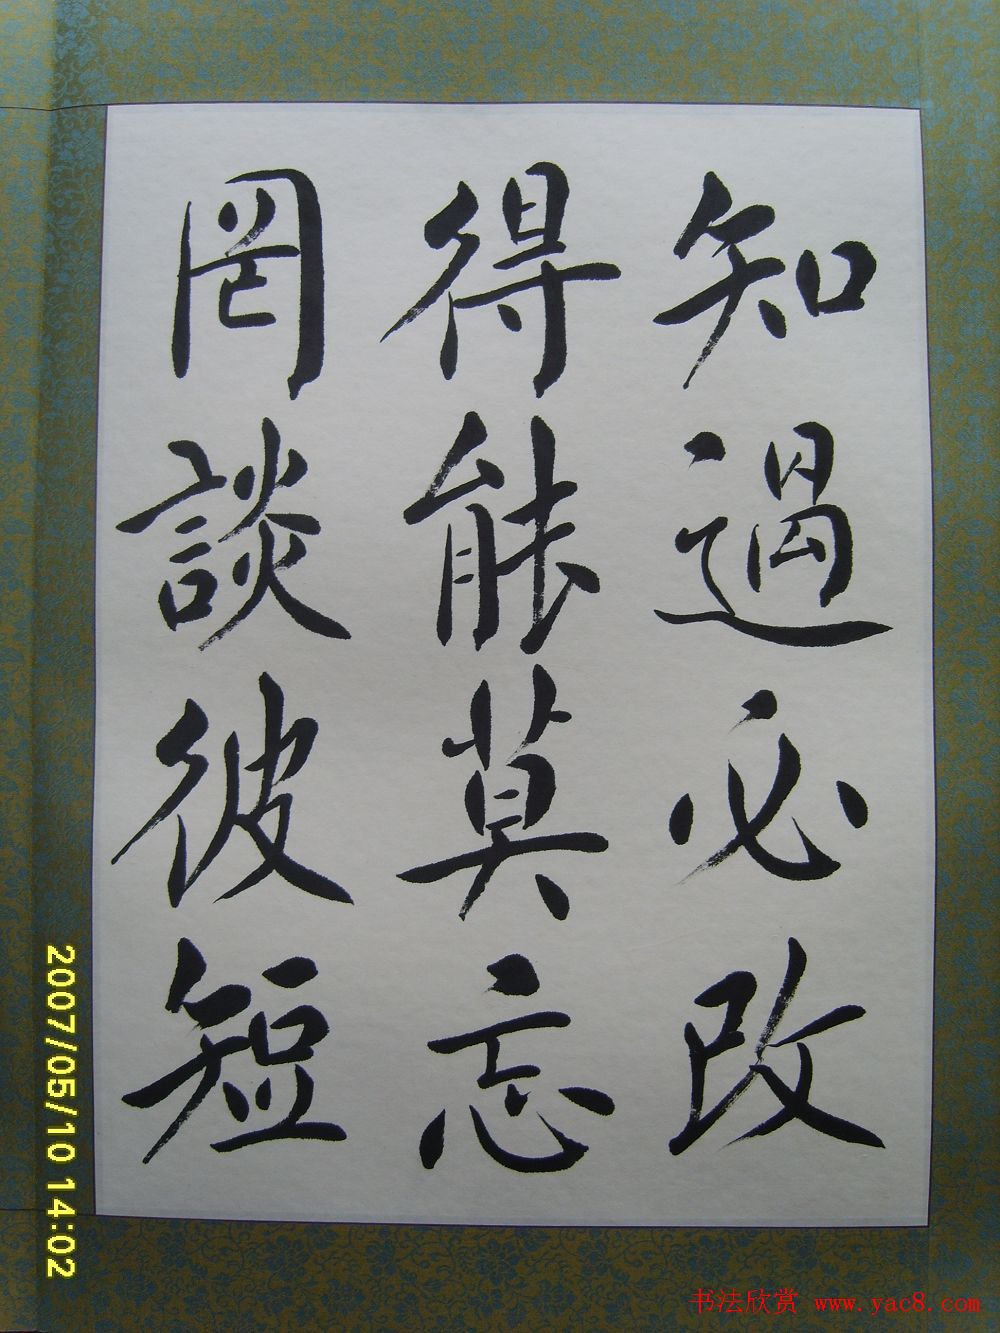 知過必改
得能莫忘
罔談彼短
2007/05/10 14:02
书法欣赏 www.yac8.com